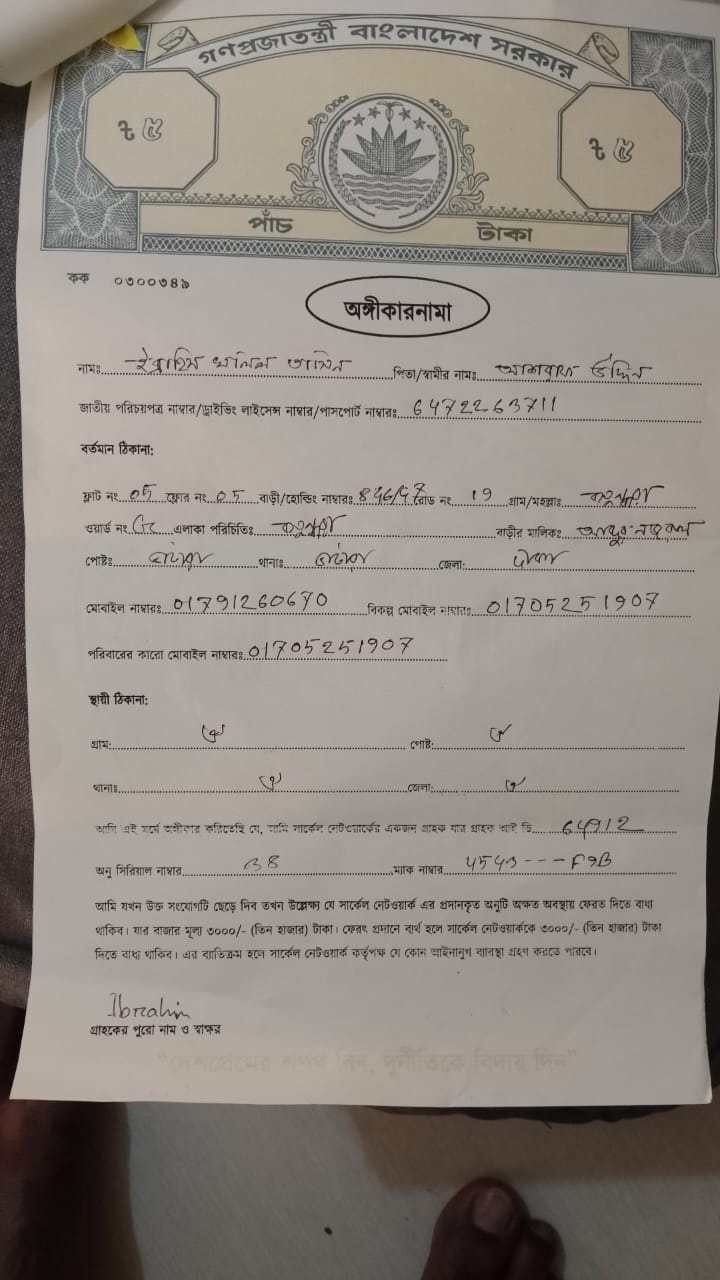 গণপ্রজাতন্ত্রী বাংলাদেশ সরকার
৳ ৫
৳ ৫
পাঁচ টাকা
কক ০৩০০৩৪৯
অঙ্গীকারনামা
নামঃ ইব্রাহিম খলিল পিতা/স্বামীর নামঃ উদ্দিন
জাতীয় পরিচয়পত্র নাম্বার/ড্রাইভিং লাইসেন্স নাম্বার/পাসপোর্ট নাম্বারঃ 6472263711
বর্তমান ঠিকানা:
ফ্লাট নং 05 ফ্লোর নং 05 বাড়ী/হোল্ডিং নাম্বারঃ রোড নং 19 গ্রাম/মহল্লাঃ
ওয়ার্ড নং এলাকা পরিচিতিঃ বাড়ীর মালিকঃ
পোষ্টঃ থানাঃ জেলা: ঢাকা
মোবাইল নাম্বারঃ 01791260670 বিকল্প মোবাইল নাম্বারঃ 01705251907
পরিবারের কারো মোবাইল নাম্বারঃ 01705251907
স্থায়ী ঠিকানা:
গ্রাম: পোষ্ট:
থানাঃ জেলা:
আমি এই মর্মে অঙ্গীকার করিতেছি যে, আমি সার্কেল নেটওয়ার্কের একজন গ্রাহক যার গ্রাহক আই ডি 64912
অনু সিরিয়াল নাম্বার ম্যাক নাম্বার
আমি যখন উক্ত সংযোগটি ছেড়ে দিব তখন উল্লেক্ষ্য যে সার্কেল নেটওয়ার্ক এর প্রদানকৃত অনুটি অক্ষত অবস্থায় ফেরত দিতে বাধ্য
থাকিব। যার বাজার মূল্য ৩০০০/- (তিন হাজার) টাকা। ফেরৎ প্রদানে ব্যর্থ হলে সার্কেল নেটওয়ার্ককে ৩০০০/- (তিন হাজার) টাকা
দিতে বাধ্য থাকিব। এর ব্যতিক্রম হলে সার্কেল নেটওয়ার্ক কর্তৃপক্ষ যে কোন আইনানুগ ব্যাবস্থা গ্রহণ করতে পারবে।
Ibrahim
গ্রাহকের পুরো নাম ও স্বাক্ষর
“দেশপ্রেমের শপথ নিন, দুর্নীতিকে বিদায় দিন”